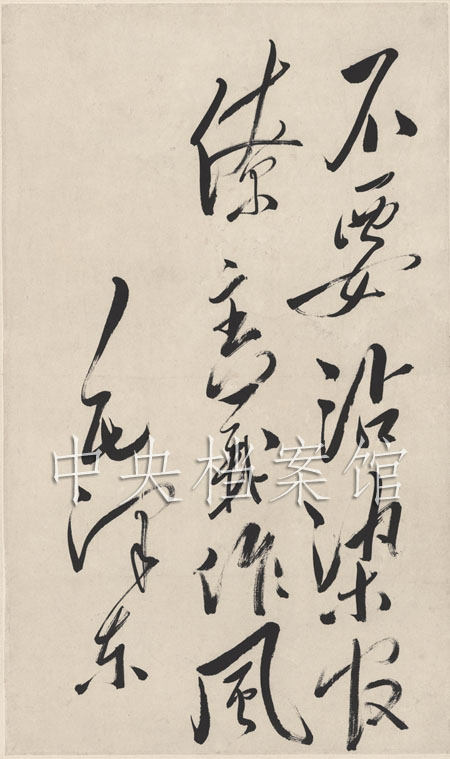 不要沾染官
僚主義作風
毛泽东
中央档案馆